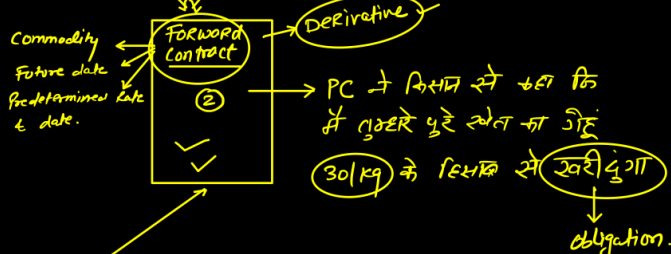 Commodity
Future date
Predetermined Rate
& date.
FORWARD
Contract
②
Derivative
PC ने किसान से कहा कि
मैं तुम्हारे पुरे खेत का गेहूं
30/kg के हिसाब से खरीदुंगा
obligation.